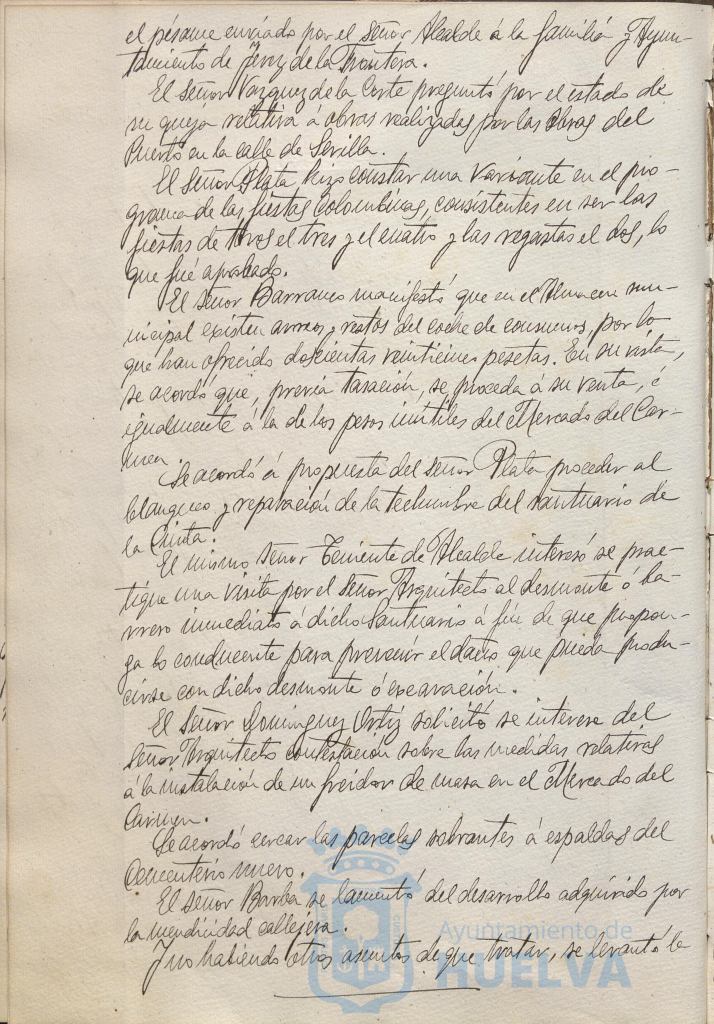 el pésame enviado por el señor Alcalde á la familia y Ayun-
tamiento de Jerez de la Frontera.
El señor Vazquez de la Corte preguntó por el estado de
su queja relativa á obras realizadas por las Obras del
Puerto en la calle de Sevilla.
El señor Plata hizo constar una variante en el pro-
grama de las fiestas Colombinas, consistentes en ser las
fiestas de toros el tres y el cuatro y las regatas el dos, lo
que fué aprobado.
El señor Barranco manifestó que en el Almacen mu-
nicipal existen arreos y restos del coche de consumos, por lo
que han ofrecido doscientas veinticinco pesetas. En su vista,
se acordó que, previa tasación, se proceda á su venta, é
igualmente á la de los pesos inútiles del Mercado del Car-
men.
Se acordó á propuesta del señor Plata proceder al
blanqueo y reparación de la techumbre del santuario de
la Cinta.
El mismo señor Teniente de Alcalde interesó se prac-
tique una visita por el señor Arquitecto al desmonte ó ba-
rrero inmediato á dicho Santuario á fin de que propon-
ga lo conducente para prevenir el daño que pueda produ-
cirse con dicho desmonte ó excavación.
El señor Dominguez Ortiz solicitó se interese del
señor Arquitecto contestación sobre las medidas relativas
á la instalación de un freidor de masa en el Mercado del
Carmen.
Se acordó cercar las parcelas sobrantes á espaldas del
Cementerio nuevo.
El señor Barba se lamentó del desarrollo adquirido por
la mendicidad callejera.
Y no habiendo otros asuntos de que tratar, se levantó la
Ayuntamiento de
HUELVA